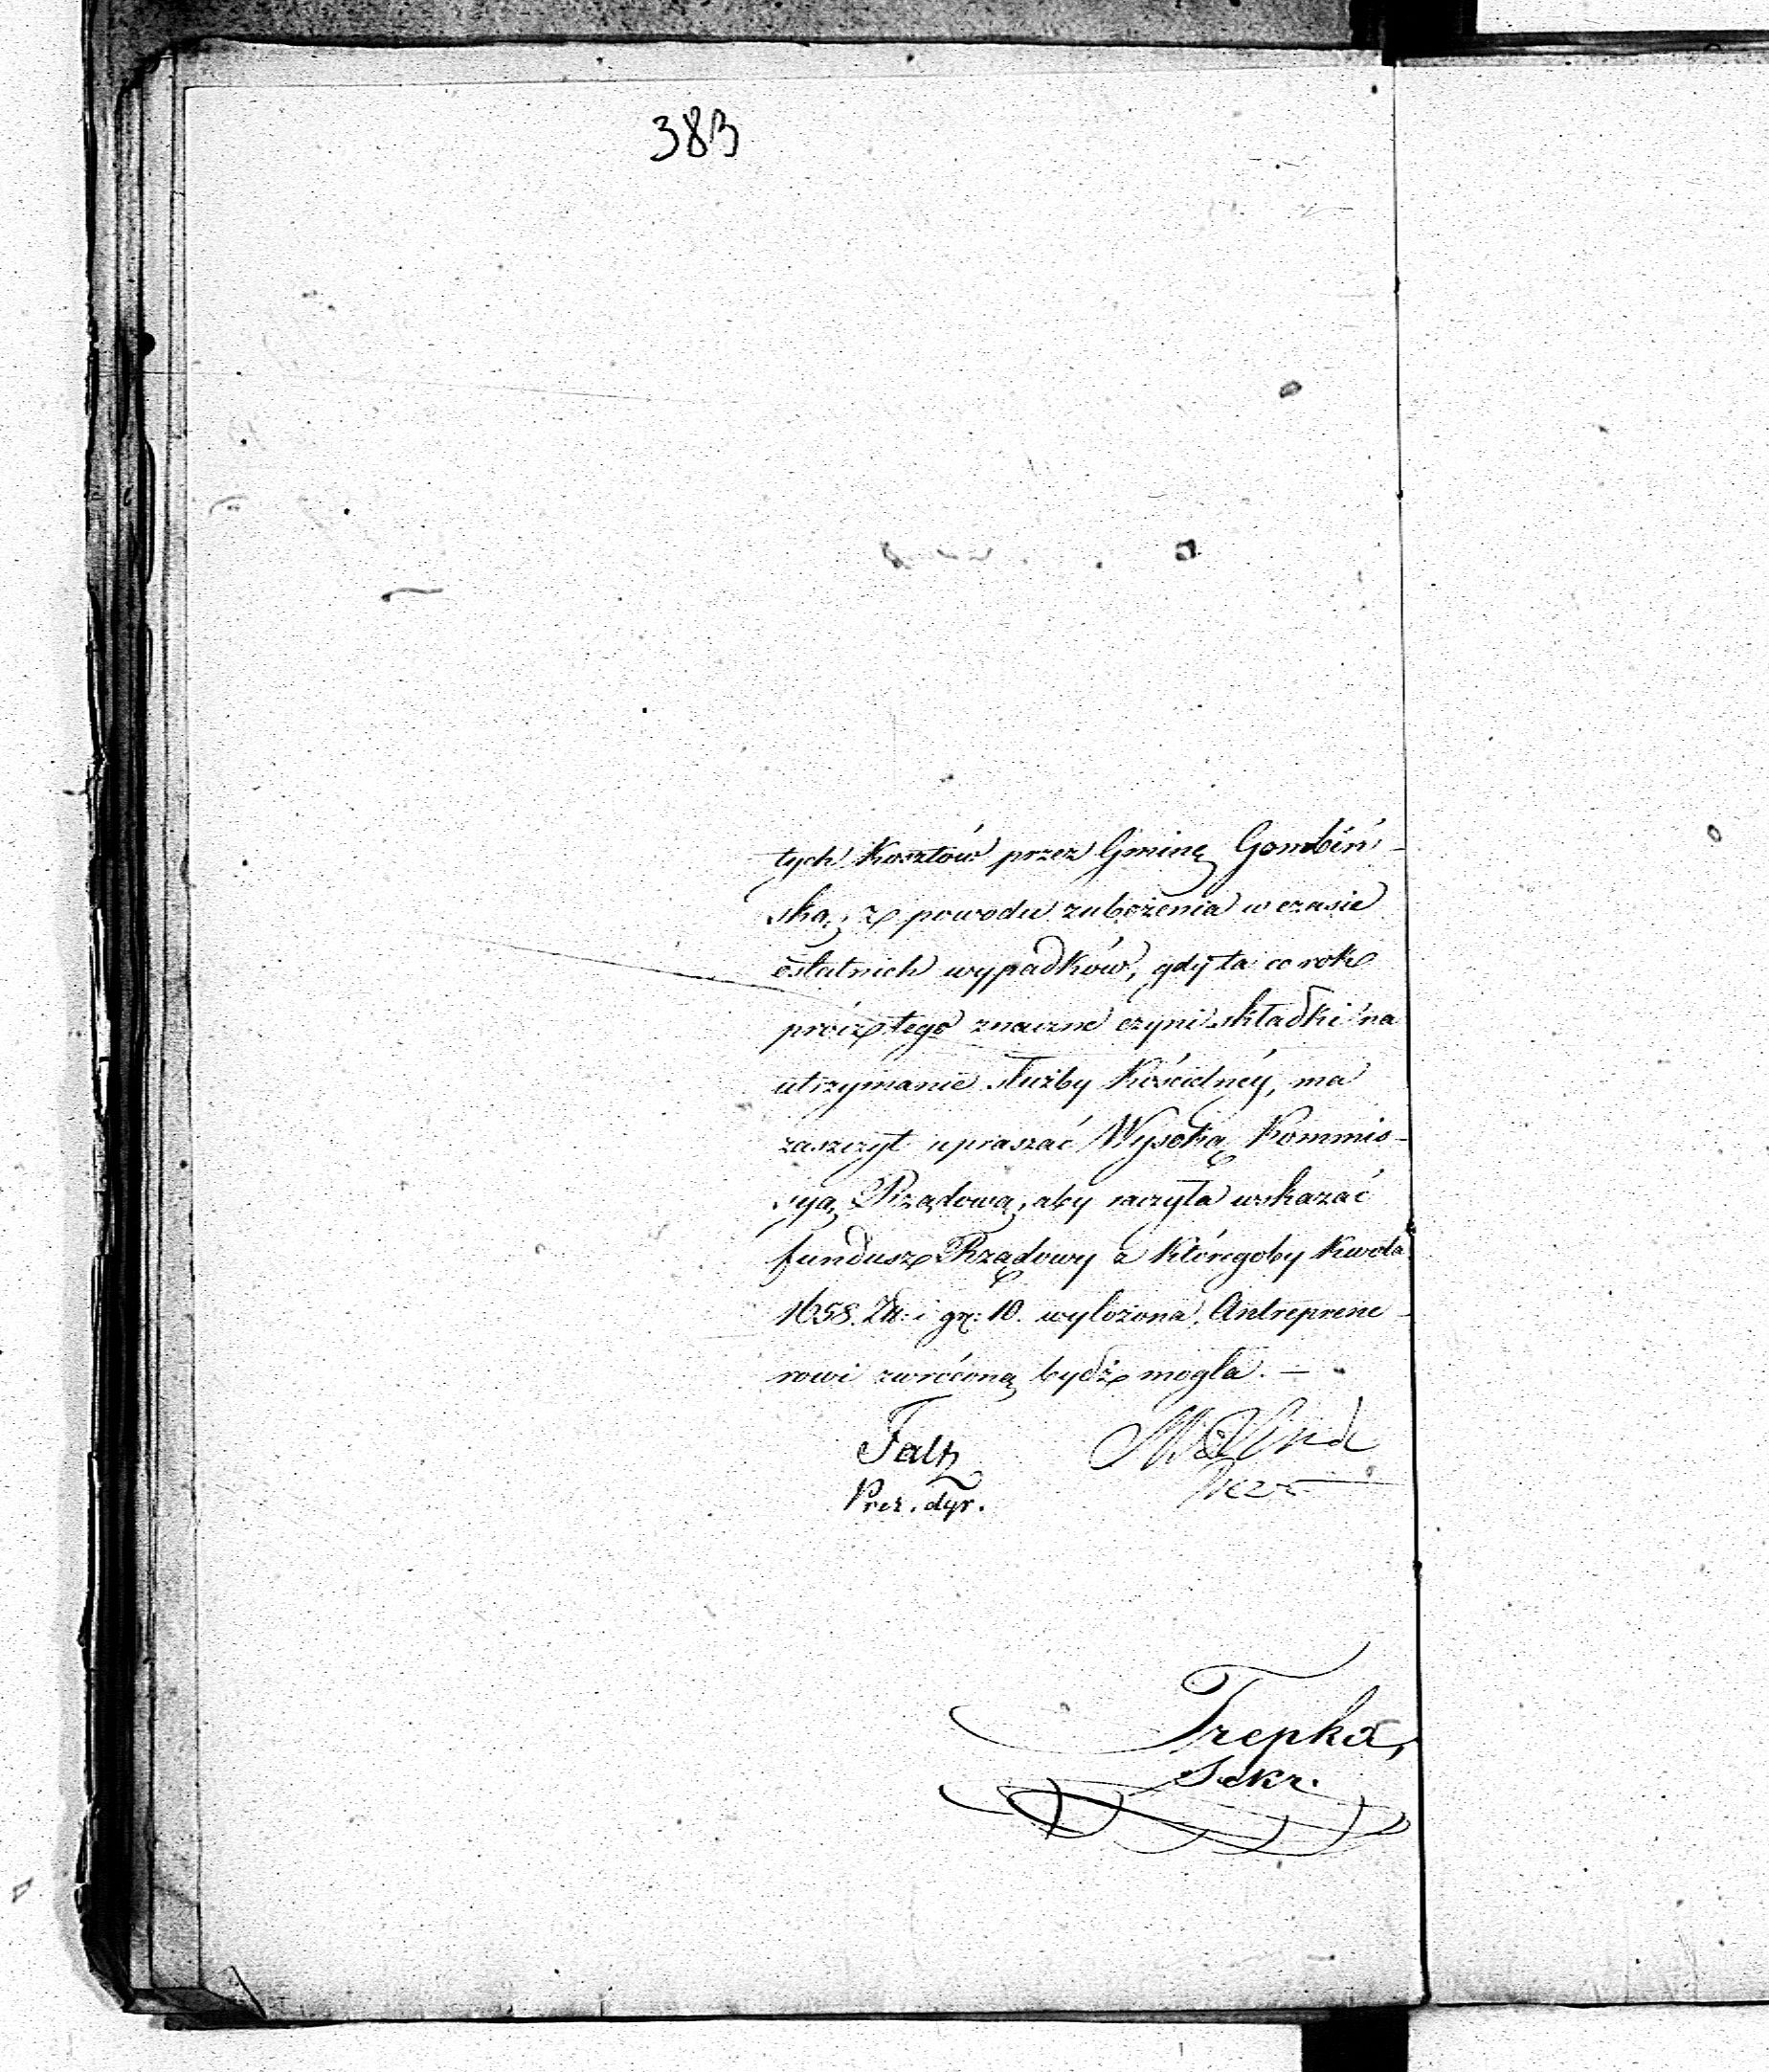 383
tych Kosztów przez Gminę Gombiń-
ską, z powodu zubożenia w czasie
ostatnich wypadków, gdy ta co rok
prócz tego znaczne czyni składki na
utrzymanie służby Kościelnéy, ma
zaszczyt upraszać Wysoką Kommis-
syą Rządową, aby raczyła wskazać
fundusz Rządowy z któregoby kwota
1658. Zł: i gr: 10. wyłożona, Antreprene-
rowi zwróconą bydź mogła. —
Faltz
Prez. dyr.
Trepka,
Sekr.